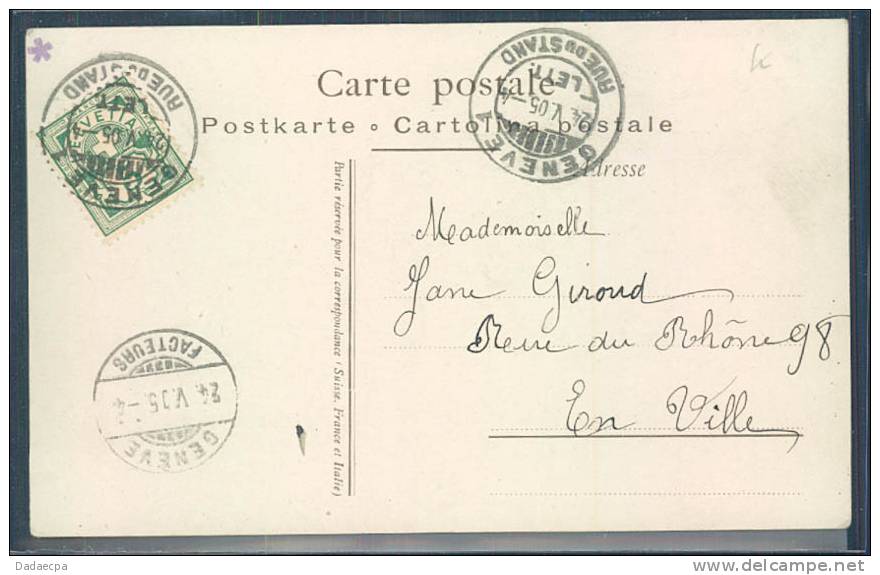 Carte postale
Postkarte o Cartolina postale
Adresse
Mademoiselle
Jane Giroud
Rue du Rhône 98
En Ville
Partie réservée pour la correspondance (Suisse, France et Italie)
GENÈVE 1
24.V.05.-4
LETT.
RUE DU STAND
GENÈVE 1
V.05
LETT.
RUE DU STAND
HELVETIA
GENÈVE
24.V.05.-4
FACTEURS
Dadaecpa
www.delcampe.net